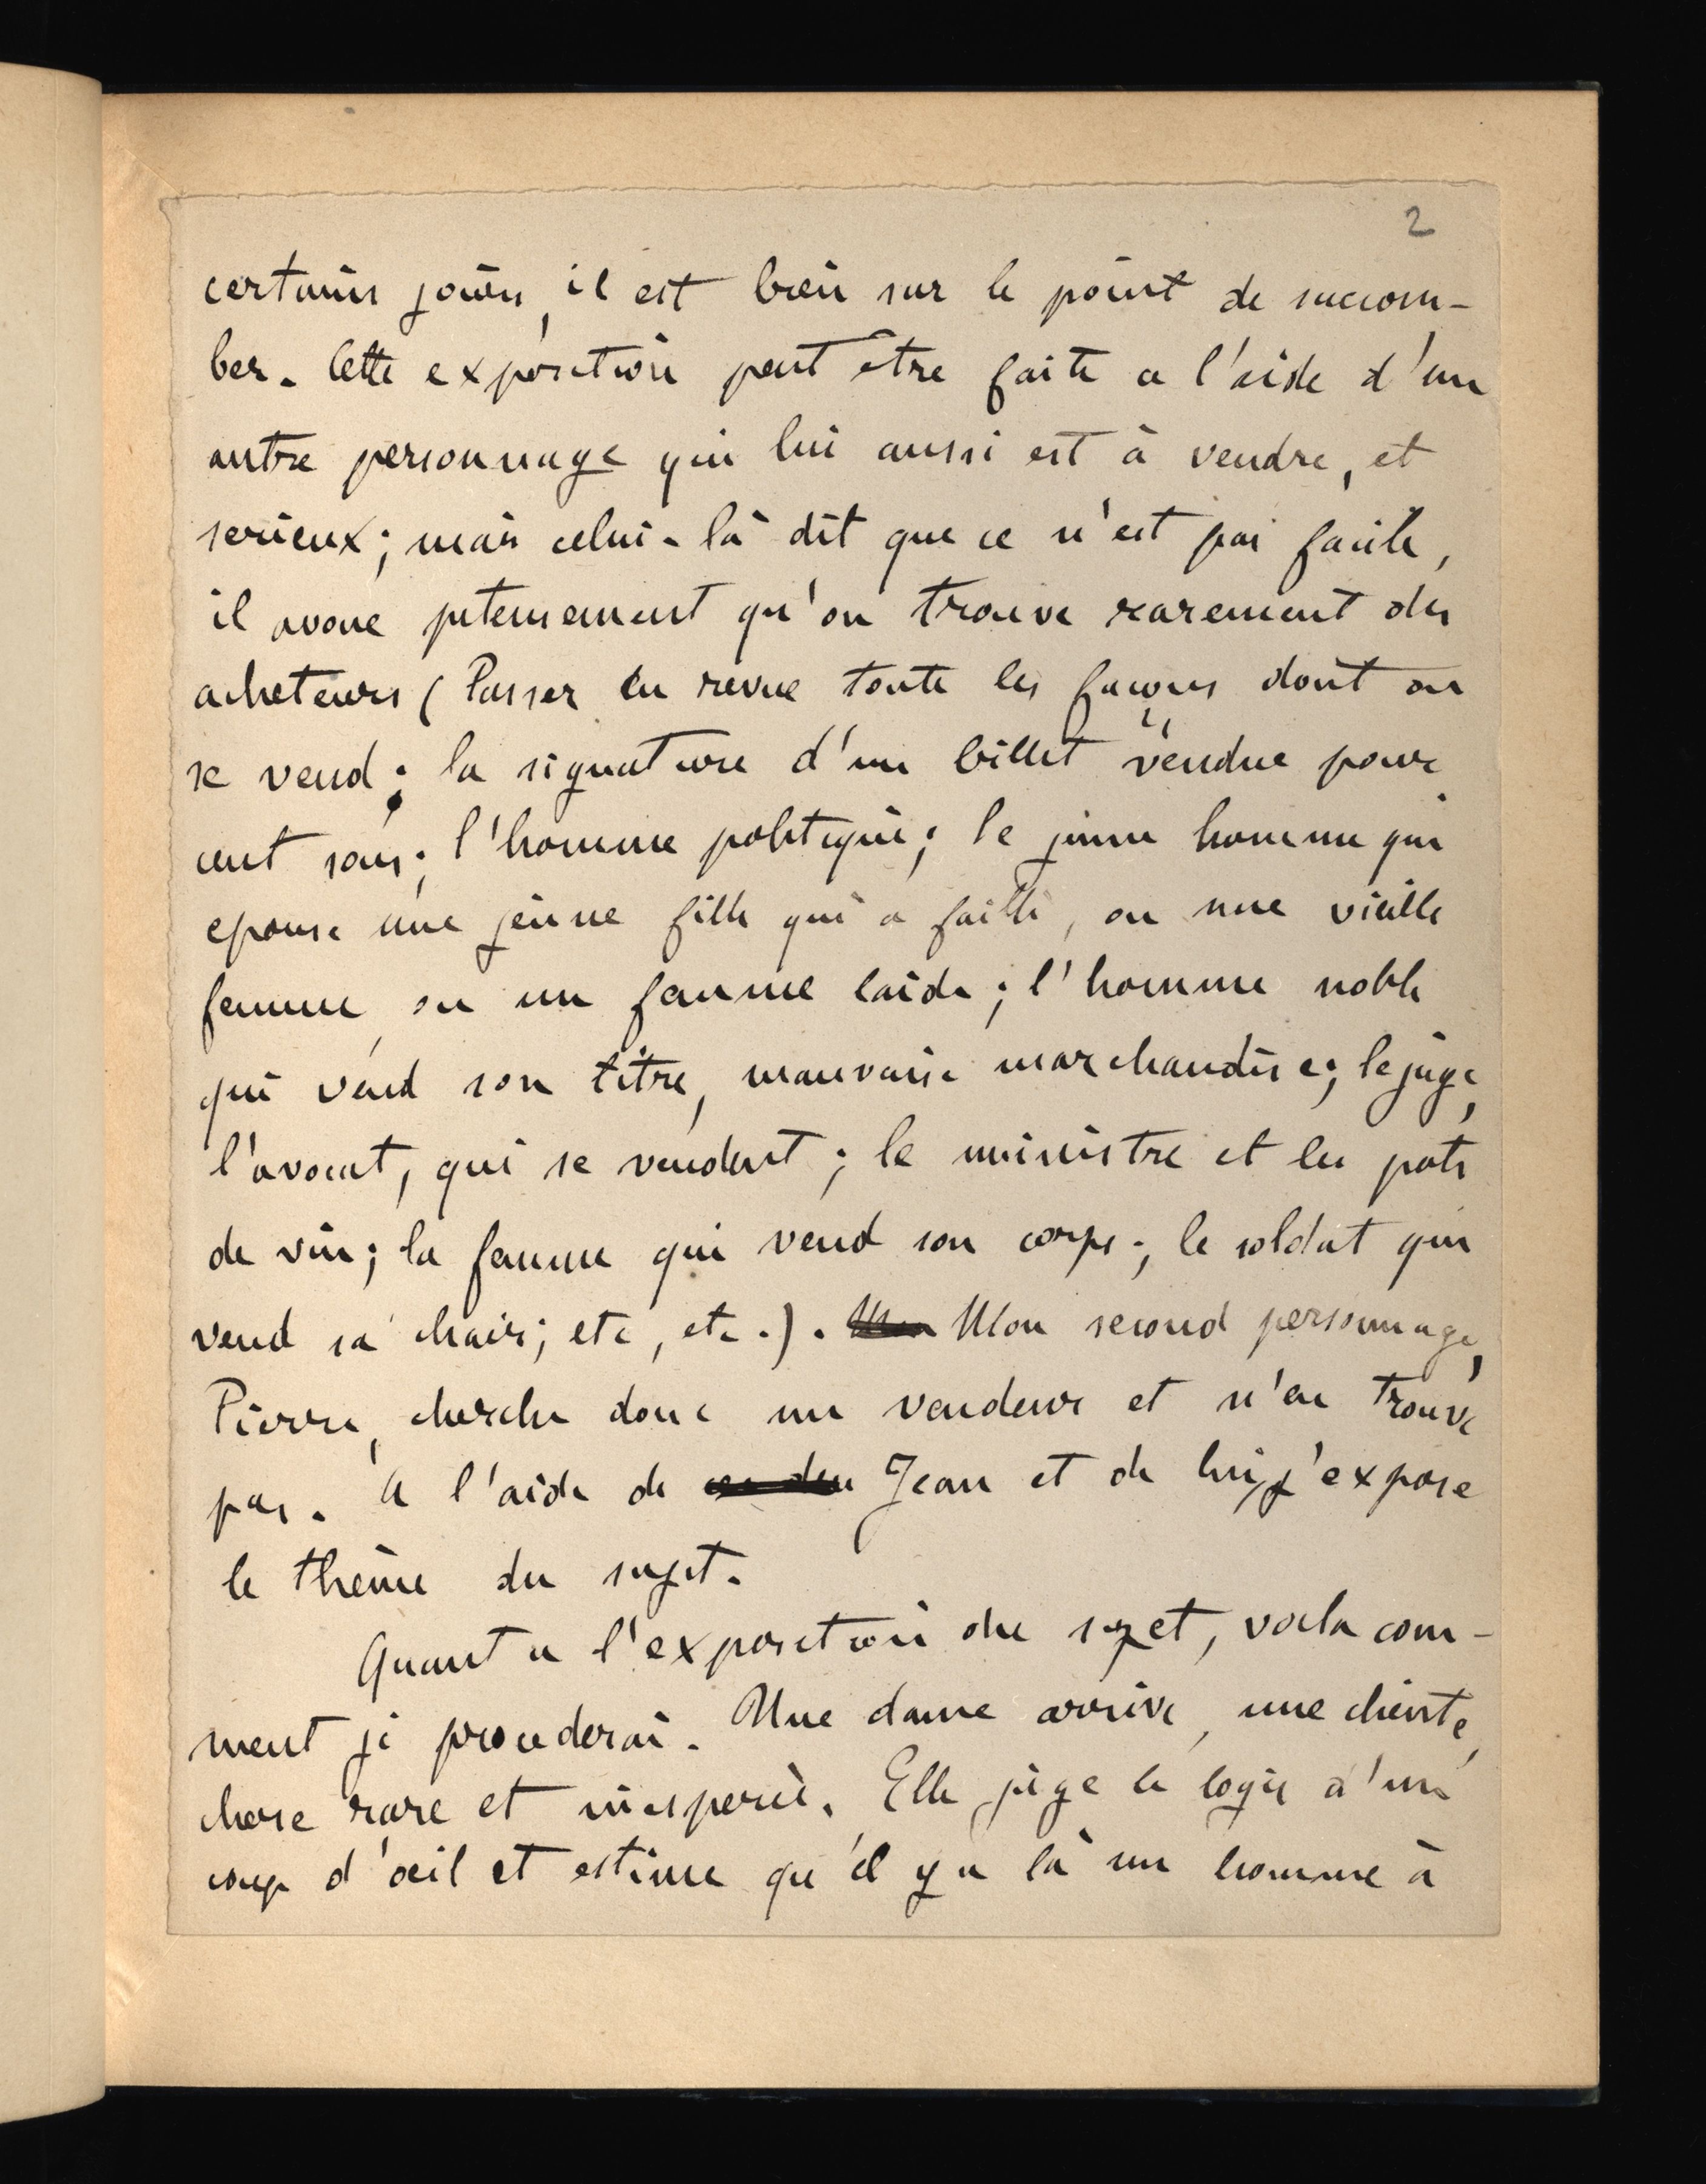 2
certains jours, il est bien sur le point de succom-
ber. Cette exposition peut être faite a l'aide d'un
autre personnage qui lui aussi est à vendre, et
serieux; mais celui-là dit que ce n'est pas facile,
il avoue piteusement qu'on trouve rarement des
acheteurs (Passer en revue toute les façons dont on
se vend; la signature d'un billet vendue pour
cent sous; l'homme politique; le jeune homme qui
epouse une jeune fille qui a failli, ou une vieille
femme, ou un femme laide; l'homme noble
qui vend son titre, mauvaise marchandise; le juge,
l'avocat, qui se vendent; le ministre et les pots
de vin; la femme qui vend son corps; le soldat qui
vend sa chair; etc, etc.). Mon second personnage,
Pierre, cherche donc un vendeur et n'en trouve
pas. A l'aide de Jean et de lui, j'expose
le thème du sujet.
Quant a l'exposition du sujet, voila com-
ment je procederai. Une dame arrive, une cliente,
chose rare et inesperée. Elle juge le logis d'un
coup d'œil et estime qu'il y a là un homme à